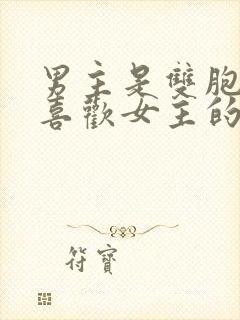 男主是雙胞
喜歡女主的
符寶